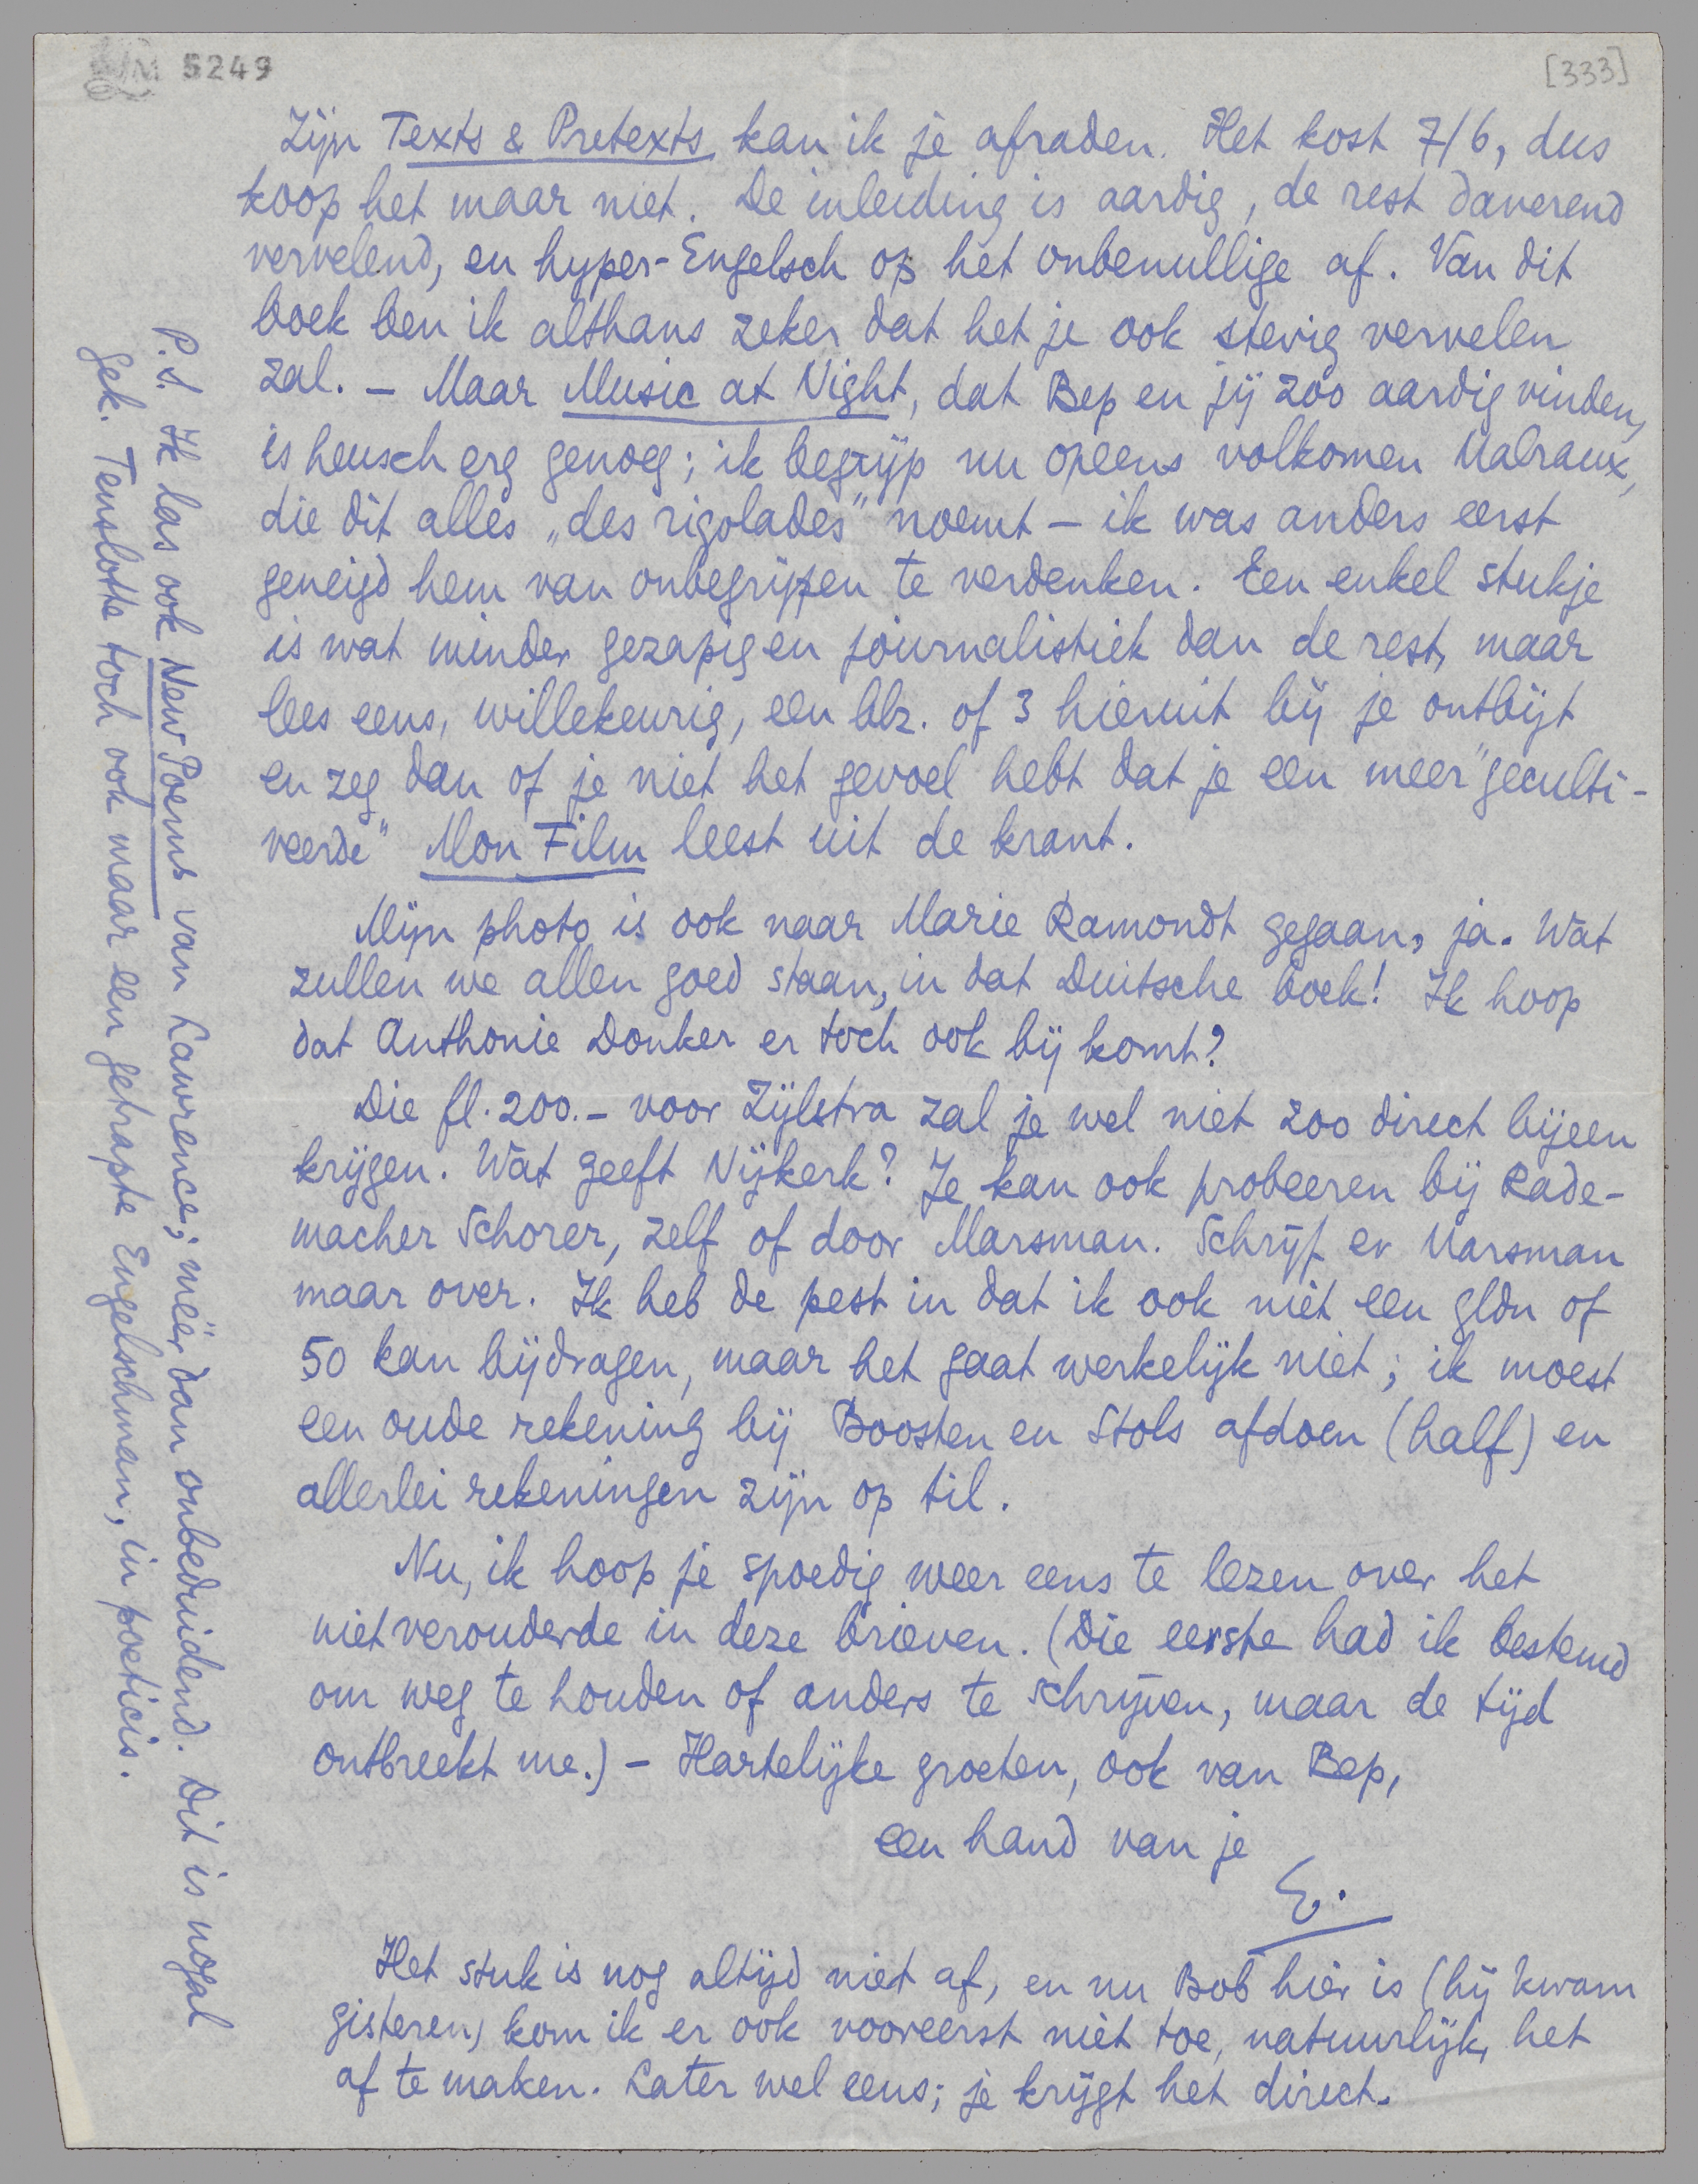 LM 5249
[333]
Zijn Texts & Pretexts kan ik je afraden. Het kost 7/6, dus
koop het maar niet. De inleiding is aardig, de rest daverend
vervelend, en hyper-Engelsch op het onbenullige af. Van dit
boek ben ik althans zeker dat het je ook stevig vervelen
zal. – Maar Music at Night, dat Bep en jij zoo aardig vinden,
is heusch erg genoeg; ik begrijp nu opeens volkomen Malraux,
die dit alles „des rigolades” noemt – ik was anders eerst
geneigd hem van onbegrijpen te verdenken. Een enkel stukje
is wat minder gezapig en journalistiek dan de rest, maar
lees eens, willekeurig, een blz. of 3 hieruit bij je ontbijt
en zeg dan of je niet het gevoel hebt dat je een meer "geculti-
veerde" Mon Film leest uit de krant.
Mijn photo is ook naar Marie Ramondt gegaan, ja. Wat
zullen we allen goed staan, in dat Duitsche boek! Ik hoop
dat Anthonie Donker er toch ook bij komt?
Die fl. 200.– voor Zijlstra zal je wel niet zoo direct bijeen
krijgen. Wat geeft Nijkerk? Je kan ook probeeren bij Rade-
macher Schorer, zelf of door Marsman. Schrijf er Marsman
maar over. Ik heb de pest in dat ik ook niet een gldn of
50 kan bijdragen, maar het gaat werkelijk niet; ik moest
een oude rekening bij Boosten en Stols afdoen (half) en
allerlei rekeningen zijn op til.
Nu, ik hoop je spoedig weer eens te lezen over het
niet verouderde in deze brieven. (Die eerste had ik bestemd
om weg te houden of anders te schrijven, maar de tijd
ontbreekt me.) – Hartelijke groeten, ook van Bep,
een hand van je
E.
Het stuk is nog altijd niet af, en nu Bob hier is (hij kwam
gisteren) kom ik er ook vooreerst niet toe, natuurlijk, het
af te maken. Later wel eens; je krijgt het direct.
P.S. Ik las ook New Poems van Lawrence; méér dan onbeduidend. Dit is nogal
gek. Tenslotte toch ook maar een getrapte Engelschman, in poeticis.